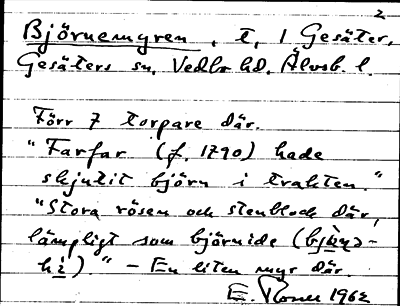 2
Björnemyren, t, 1 Gesäter,
Gesäters sn, Vedbo hd. Älvsb. l.
Förr 7 torpare där.
"Farfar (f. 1790) hade
skjutit björn i trakten."
"Stora rösen och stenblock där,
lämpligt som björnide (
hi)." – En liten myr där.
E. 1962